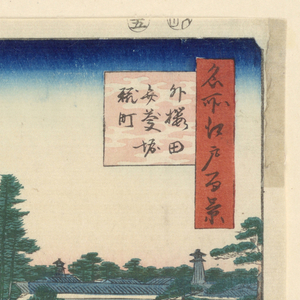 五
名所江戸百景
外櫻田
弁慶堀
糀町